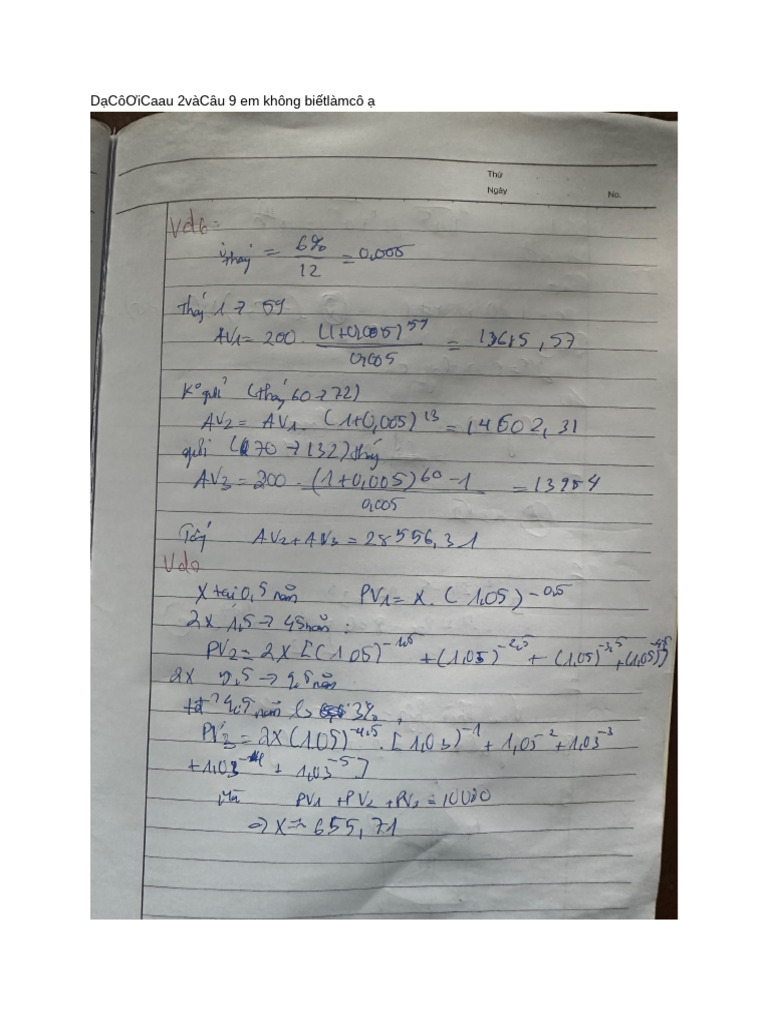 DạCôƠiCaau 2vàCâu 9 em không biếtlàmcô ạ
Thứ
Ngày No.
Vd6:
i tháng = 6% / 12 = 0,005
Tháng 1 → 59
AV1 = 200 . (1+0,005)^59 / 0,005 = 13685,57
K° gửi (tháng 60 → 72)
AV2 = AV1 . (1+0,005)^13 = 14602,31
gửi ( 70 → 132) tháng
AV3 = 200 . (1+0,005)^60 - 1 / 0,005 = 13954
Tổng AV2 + AV3 = 28556,31
X tại 0,5 năm PV1 = X . (1,05)^-0,5
2X 1,5 → 4,5 năm :
PV2 = 2X [(1,05)^-1,5 + (1,05)^-2,5 + (1,05)^-3,5 + (1,05)^-4,5]
2X 5,5 → 9,5 năm
4,5 năm 3%
PV3 = 2X (1,05)^-4,5 . [1,03)^-1 + 1,05^-2 + 1,03^-3
+ 1,03^-4 + 1,03^-5]
Mà PV1 + PV2 + PV3 = 10000
⇒ X = 655,71